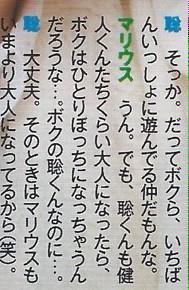 聡　そっか。だってボクら、いちば
んいっしょに遊んでる仲だもんな。
マリウス　うん。でも、聡くんも健
人くんたちくらい大人になったら、
ボクはひとりぼっちになっちゃうん
だろうな…。ボクの聡くんなのに…。
聡　大丈夫。そのときはマリウスも
いまより大人になってるから（笑）。